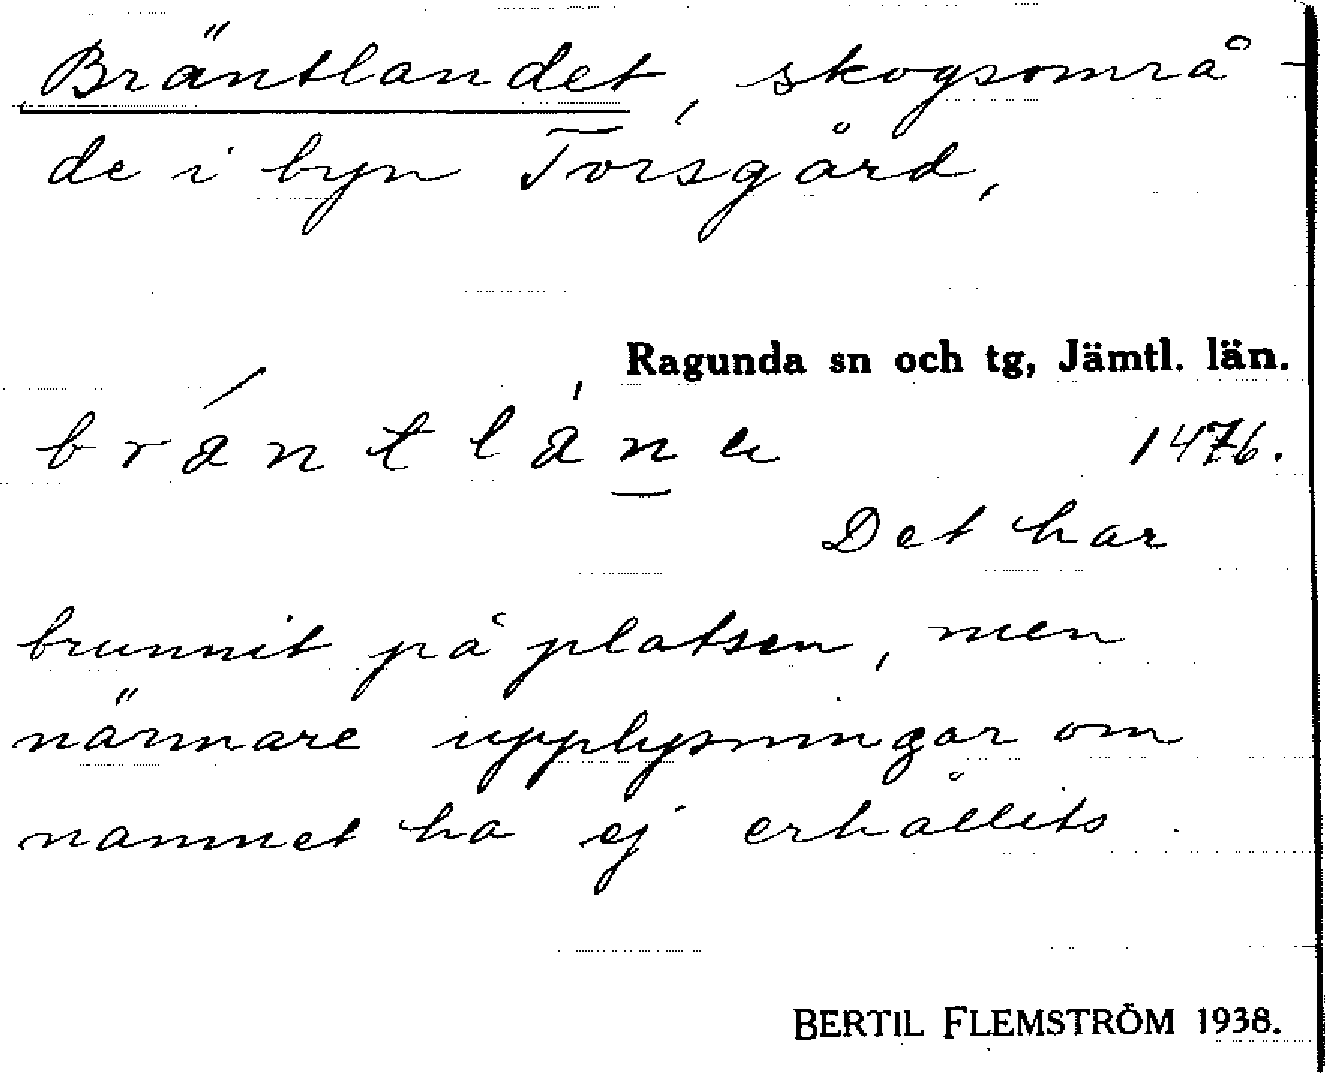 Bräntlandet, skogsområ-
de i byn Torsgård,
Ragunda sn och tg, Jämtl. län.
bräntläne 1476.
Det har
brunnit på platsen, men
närmare upplysningar om
namnet ha ej erhållits.
BERTIL FLEMSTRÖM 1938.